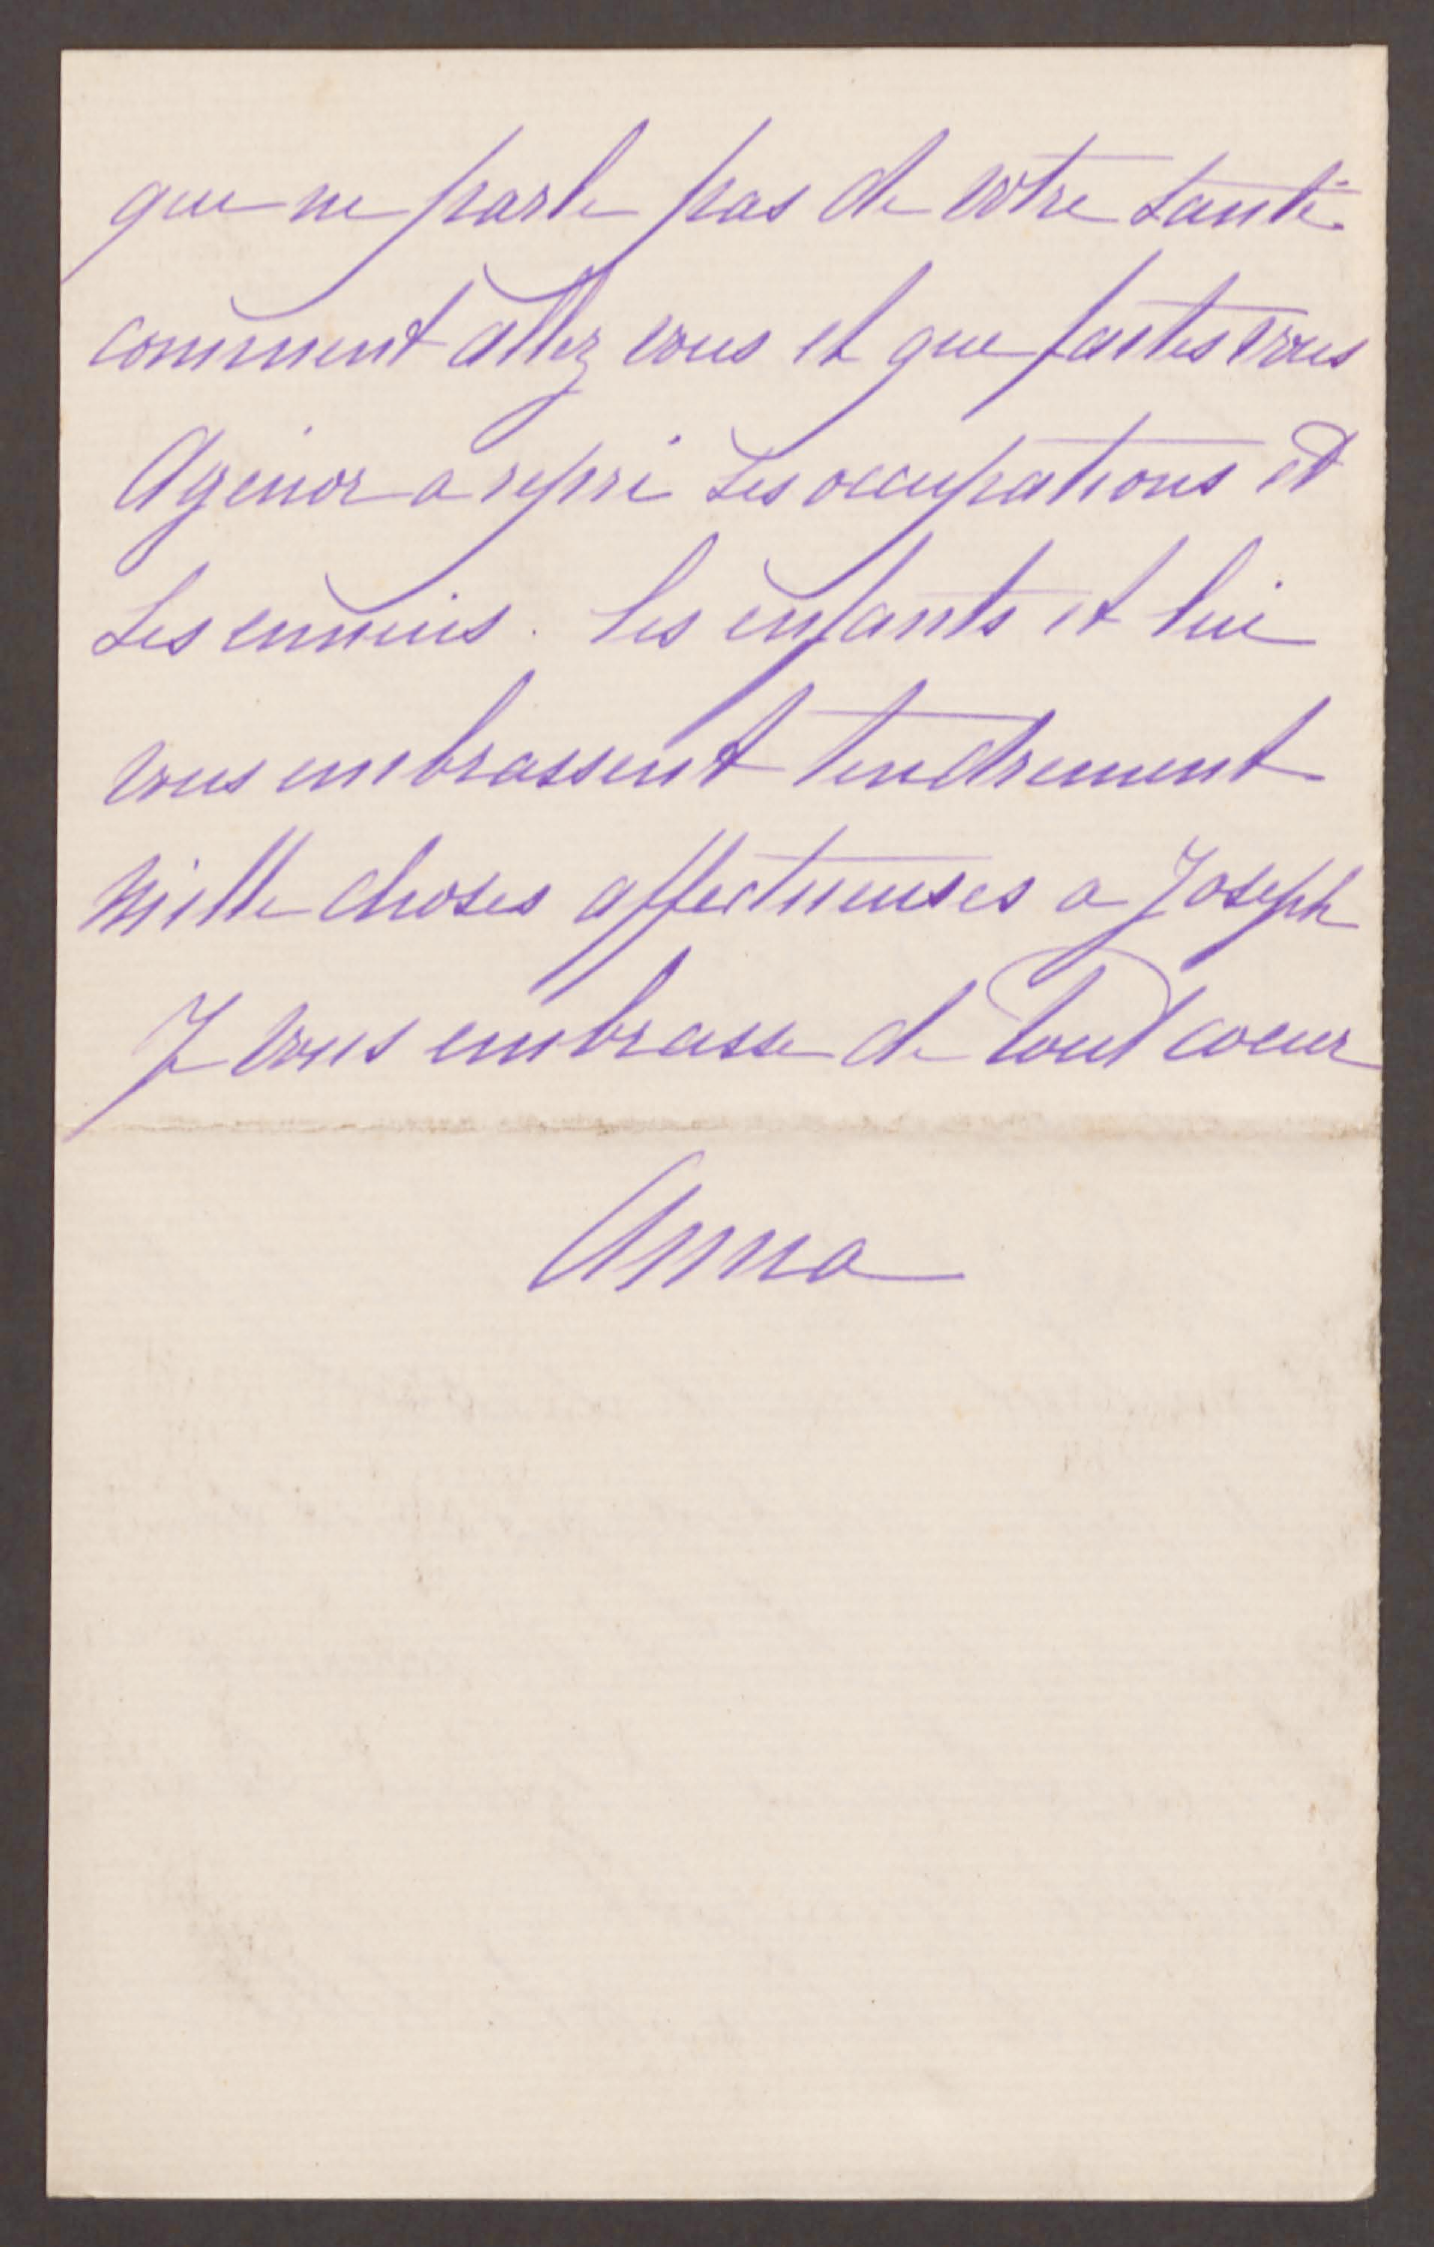 que ne parle pas de votre santé
comment allez vous et que faites vous
Agenor a repri ses occupations et
ses ennuis. les enfants et lui
vous embrassent tendrement
Mille choses affectueuses a Joseph
Je vous embrasse de tout coeur
Anna